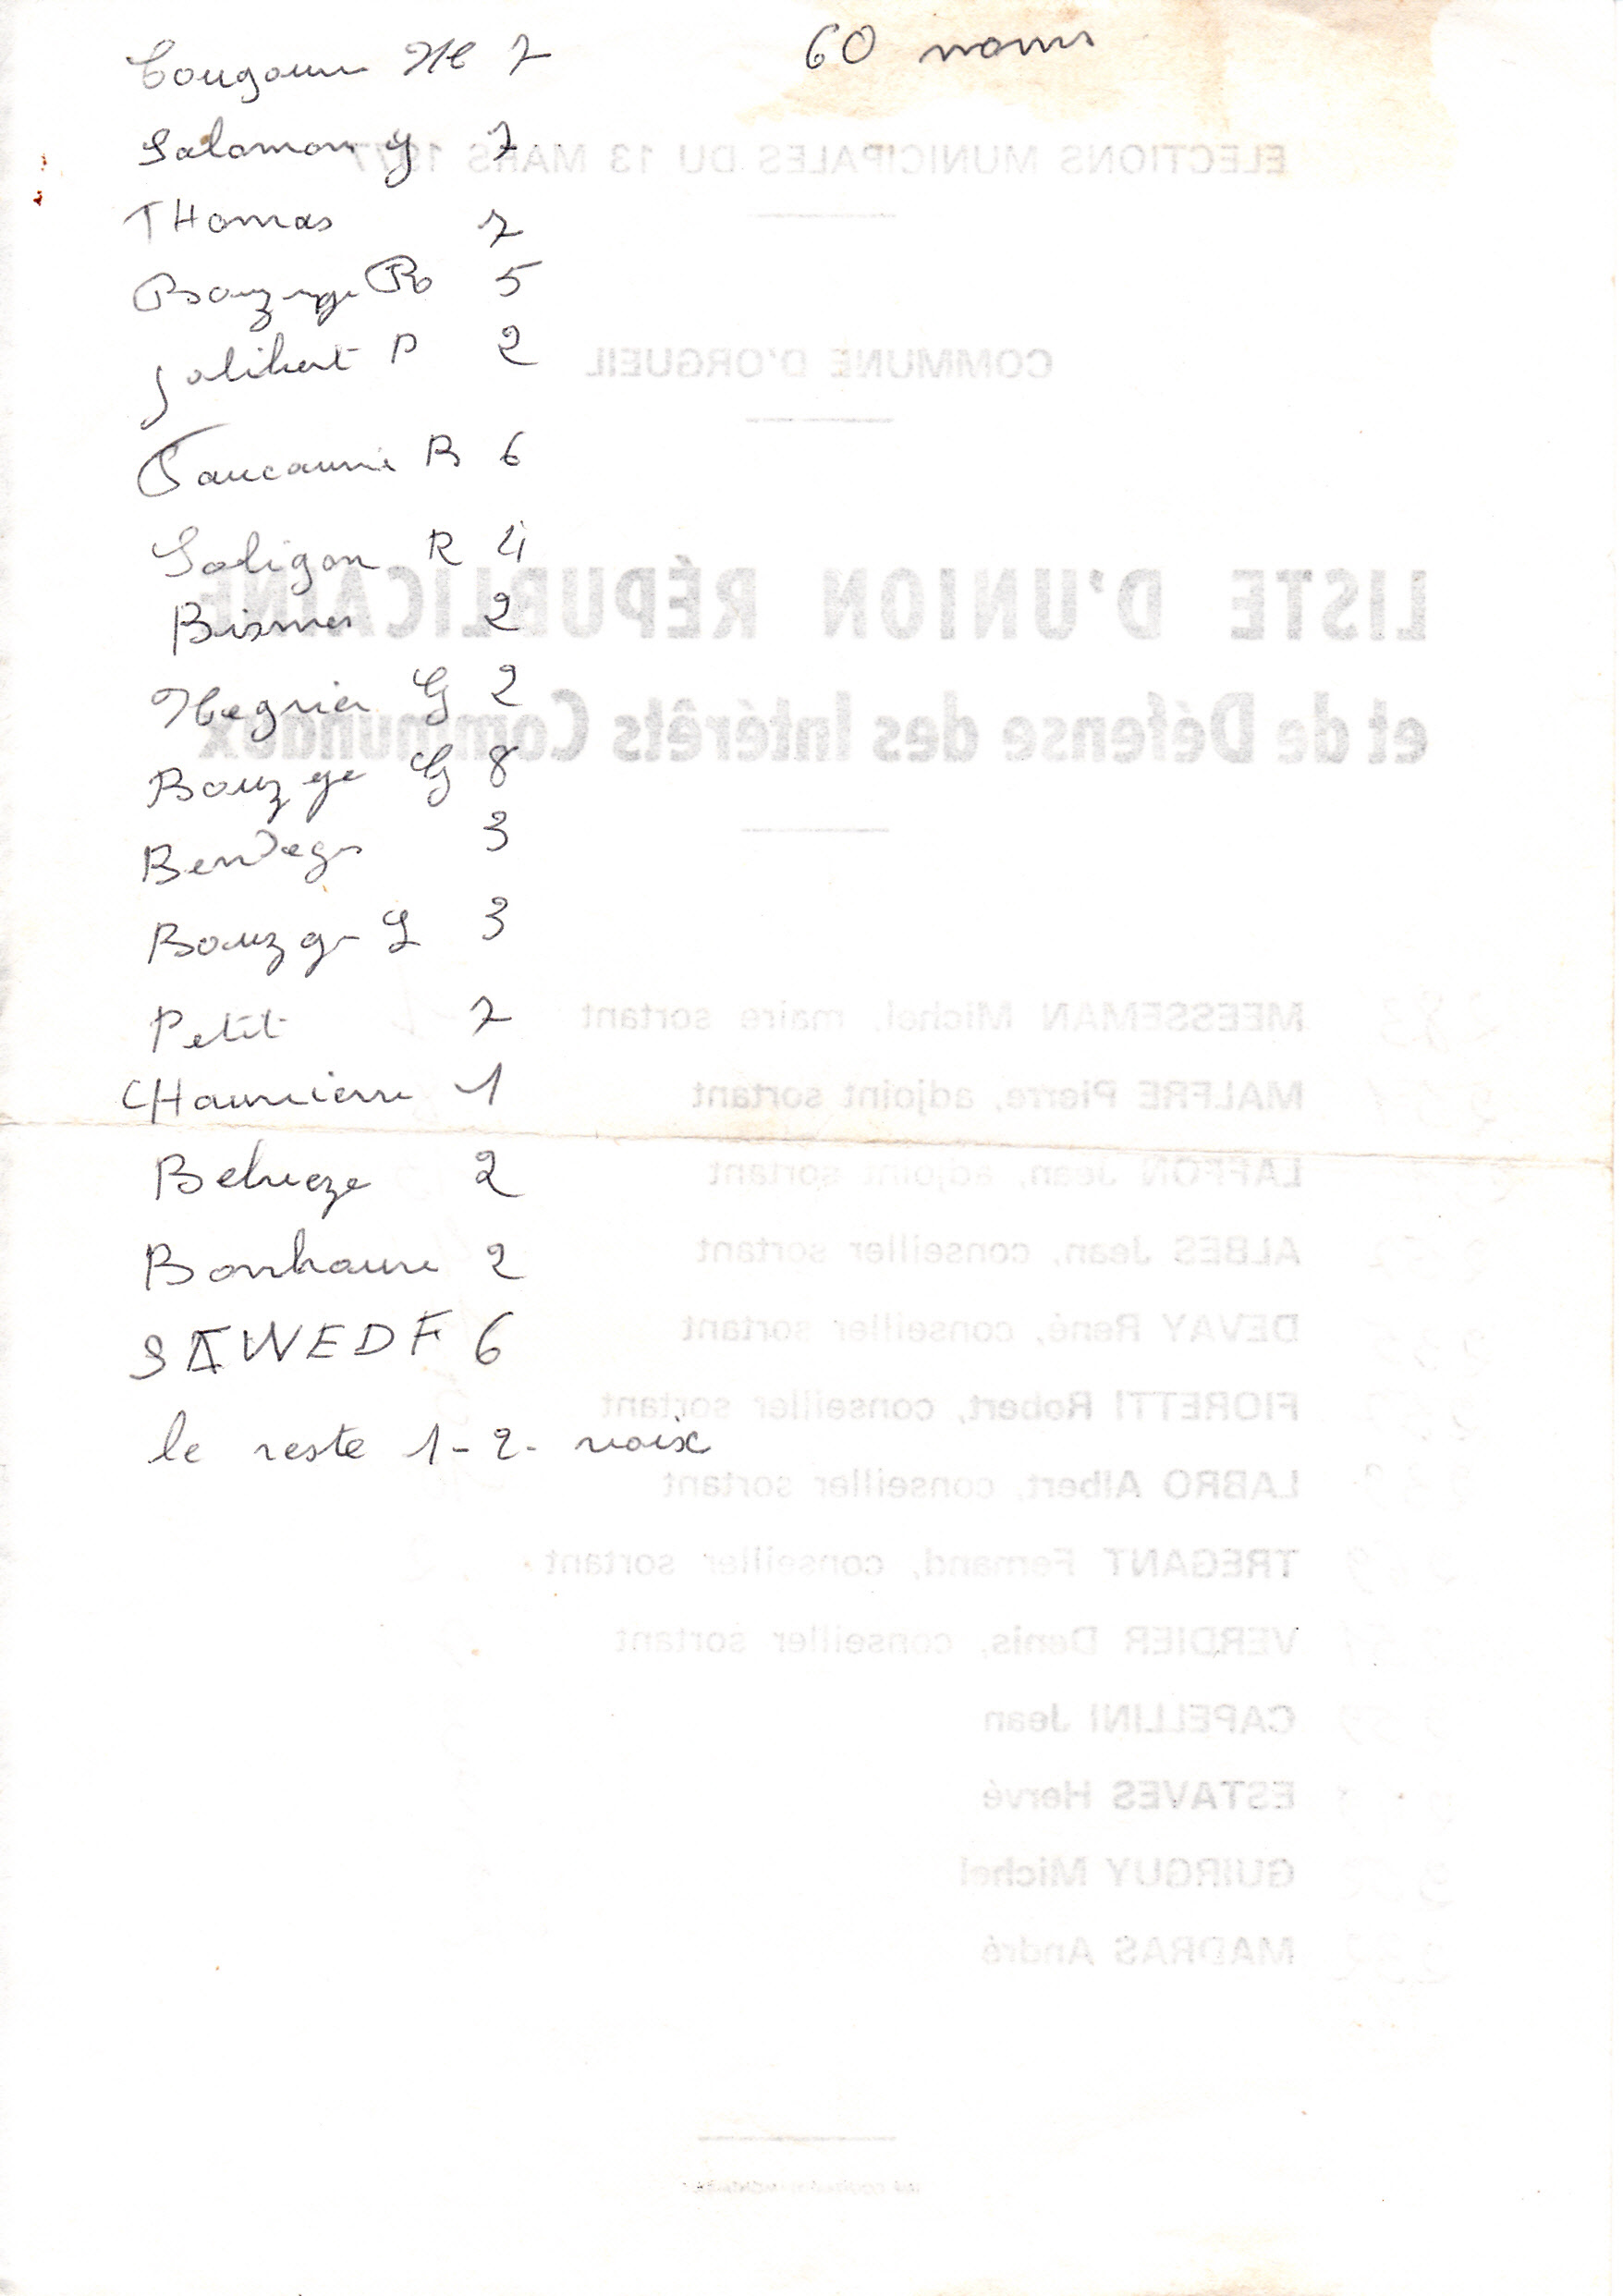 60 noms
7
Salomon G 7
THomas 7
Bouzege Ro 5
Jalibert P 2
R 6
Saligon R 4
Bismes 2
Magnier G 2
Bouzge G 8
3
Bouzge L 3
Petit 7
CHaumierre 1
Belueze 2
Bonhaure 2
6
le reste 1-2- voix
ELECTIONS MUNICIPALES DU 13 MARS 1977
COMMUNE D'ORGUEIL
LISTE D'UNION RÉPUBLICAINE
et de Défense des Intérêts Communaux
MEESSEMAN Michel, maire sortant
MALFRE Pierre, adjoint sortant
LAFFON Jean, adjoint sortant
ALBES Jean, conseiller sortant
DEVAY René, conseiller sortant
FIORETTI Robert, conseiller sortant
LABRO Albert, conseiller sortant
TREGANT Fernand, conseiller sortant
VERDIER Denis, conseiller sortant
CAPELLINI Jean
ESTAVES Hervé
GUIRGUY Michel
MADRAS André